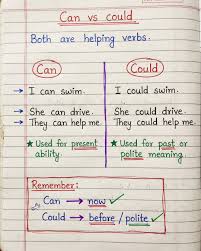 Can vs could
Both are helping verbs.
Can
Could
→ I can swim.
I could swim.
→ She can drive.
She could drive.
→ They can help me.
They could help me.
★ Used for present ability.
★ Used for past or polite meaning.
Remember:
Can → now ✓
Could → before / polite ✓